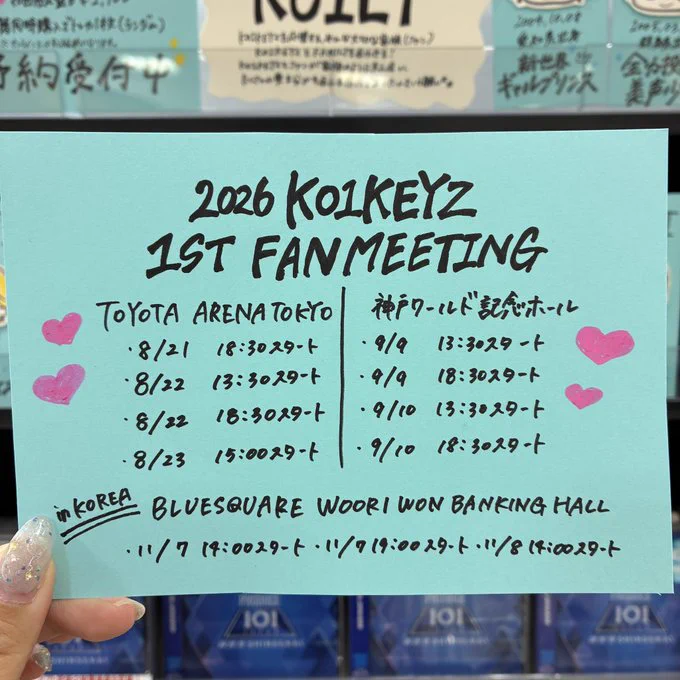 予約受付中
新世界
ギャルプリンス
2026 KO1KEYZ
1ST FANMEETING
TOYOTA ARENA TOKYO
・8/21 18:30スタート
・8/22 13:30スタート
・8/22 18:30スタート
・8/23 15:00スタート
神戸ワールド記念ホール
・9/9 13:30スタート
・9/9 18:30スタート
・9/10 13:30スタート
・9/10 18:30スタート
in KOREA
BLUESQUARE WOORI WON BANKING HALL
・11/7 14:00スタート ・11/7 19:00スタート ・11/8 14:00スタート
101
101